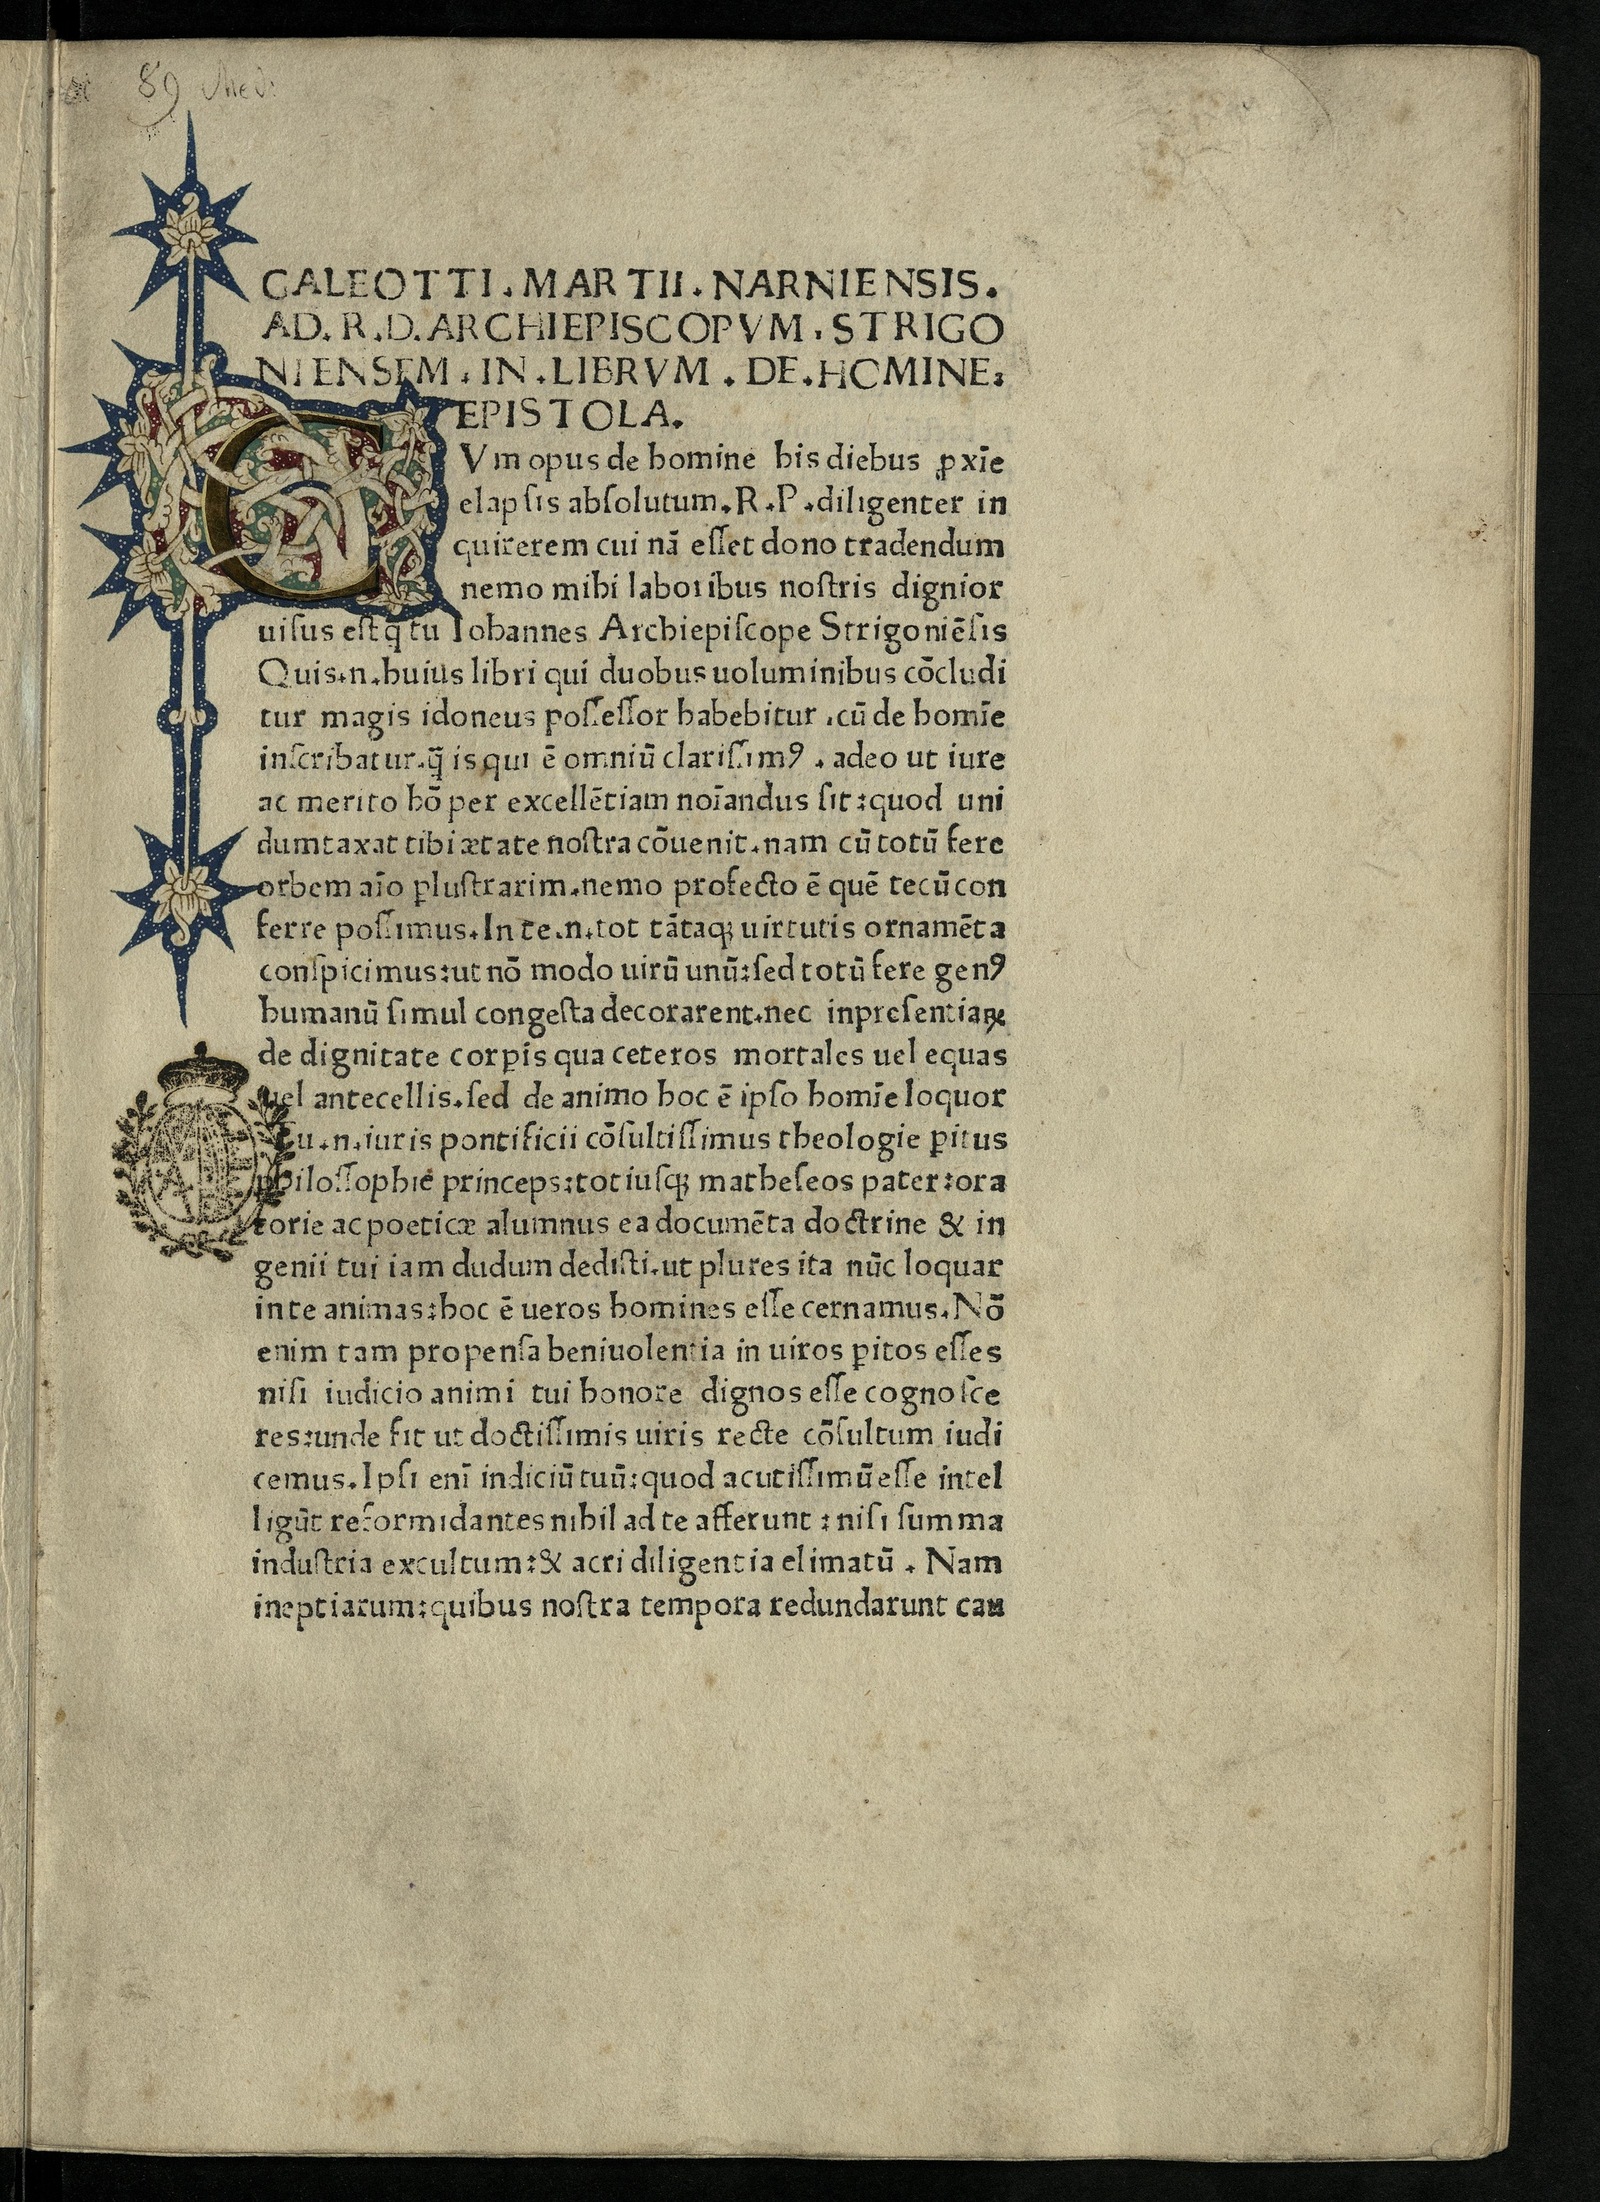 89
GALEOTTI . MARTII . NARNIENSIS .
AD . R . D . ARCHIEPISCOPVM . STRIGO
NIENSEM . IN . LIBRVM . DE . HOMINE:
EPISTOLA .
CVm opus de homine his diebus ꝓxīe
elapſis abſolutum . R . P . diligenter in
quirerem cui nā eſſet dono tradendum
nemo mihi laboribus noſtris dignior
uiſus eſt q̄ tu Iohannes Archiepiſcope Strigoniēſis
Quis . n . huius libri qui duobus uoluminibus cōcludi
tur magis idoneus poſſeſſor habebitur . cū de homīe
inſcribatur . q̄ is qui ē omniū clariſſimꝰ . adeo ut iure
ac merito hō per excellētiam noīandus ſit : quod uni
dumtaxat tibi ætate noſtra cōuenit . nam cū totū fere
orbem aīo ꝑluſtrarim . nemo profecto ē quē tecū con
ferre poſſimus . In te . n . tot tātaqꝫ uirtutis ornamēta
conſpicimus : ut nō modo uirū unū : ſed totū fere genꝰ
humanū ſimul congeſta decorarent . nec inpreſentiaꝝ
de dignitate corꝑis qua ceteros mortales uel equas
uel antecellis . ſed de animo hoc ē ipſo homīe loquor
Tu . n . iuris pontificii cōſultiſſimus theologie ꝑitus
philoſſophie princeps : totiuſqꝫ matheſeos pater : ora
torie ac poeticæ alumnus ea documēta doctrine & in
genii tui iam dudum dediſti . ut plures ita nūc loquar
in te animas : hoc ē ueros homines eſſe cernamus . Nō
enim tam propenſa beniuolentia in uiros ꝑitos eſſes
niſi iudicio animi tui honore dignos eſſe cognoſce
res : unde fit ut doctiſſimis uiris recte cōſultum iudi
cemus . Ipſi enī indiciū tuū : quod acutiſſimū eſſe intel
ligūt reformidantes nihil ad te afferunt : niſi ſumma
induſtria excultum : & acri diligentia elimatū . Nam
ineptiarum : quibus noſtra tempora redundarunt cau